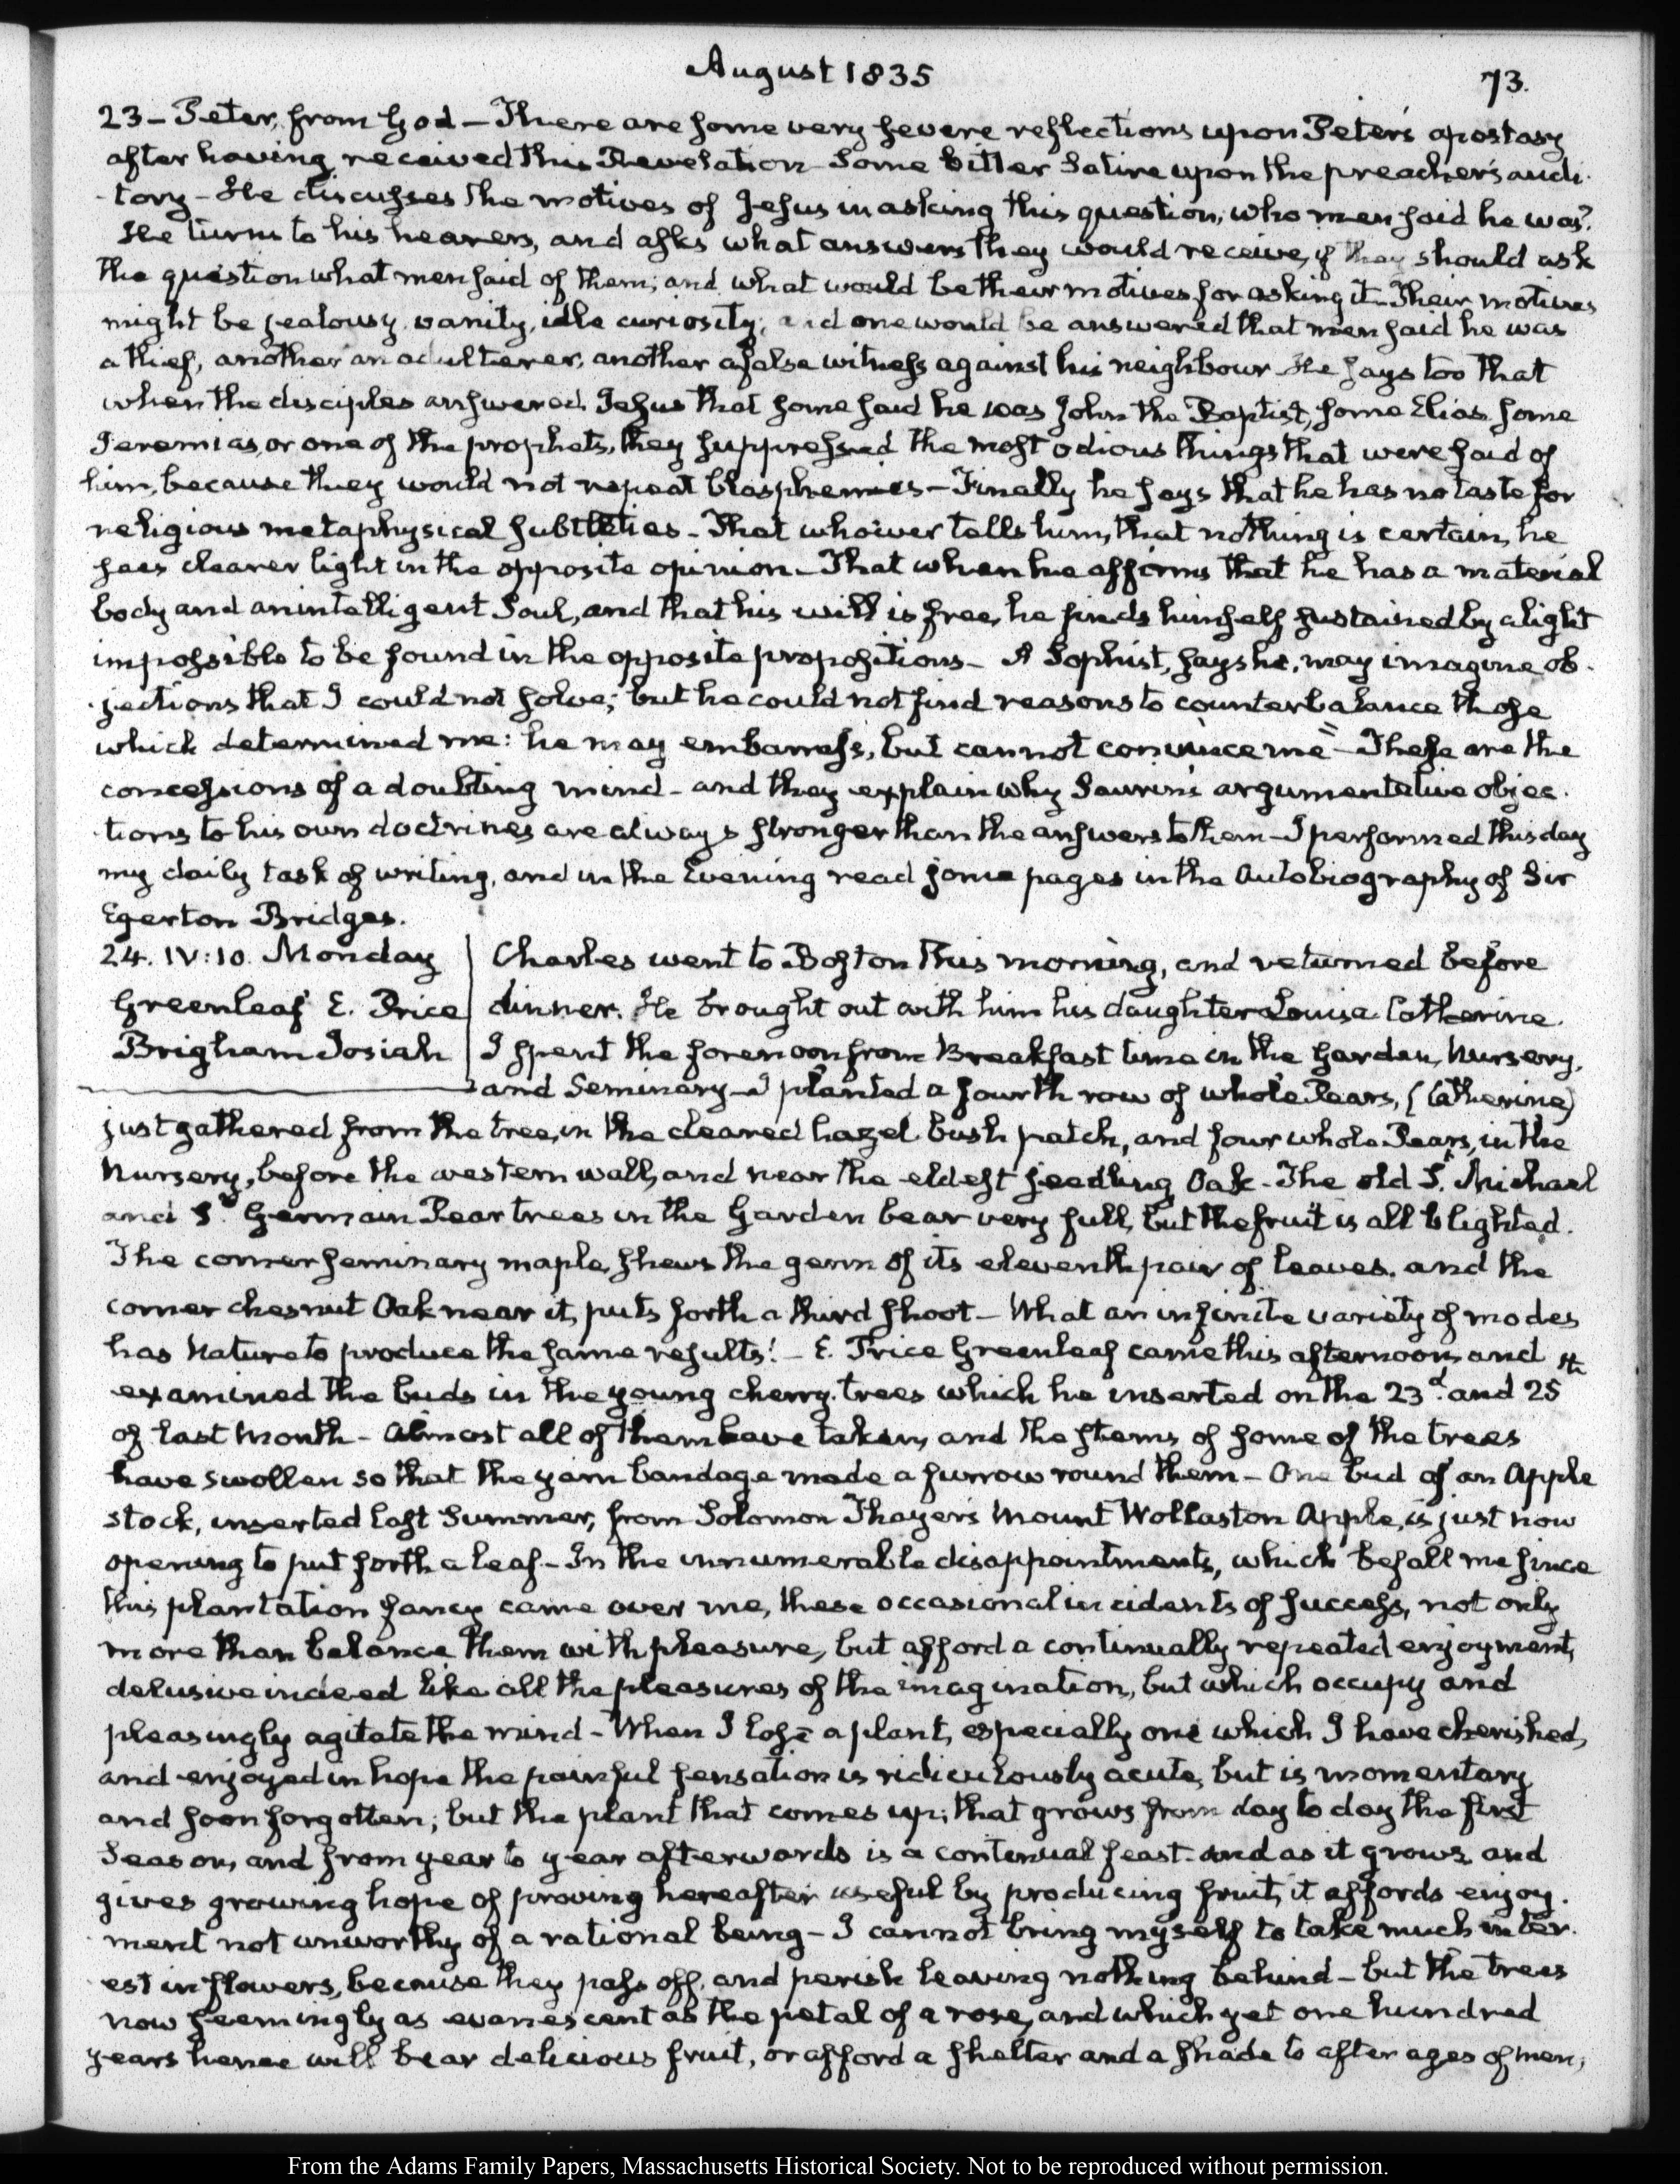 August 1835
73.
23 – Peter, from God – There are some very severe reflections upon Peter's apostasy
after having received this Revelation – Some bitter Satire upon the preacher's audi-
-tory – He discusses the motives of Jesus in asking this question, who men said he was?
He turns to his hearers, and asks what answers they would receive, if they should ask
the question what men said of them; and what would be their motives for asking it – Their motives
might be jealousy, vanity, idle curiosity; and one would be answered that men said he was
a thief, another an adulterer, another a false witness against his neighbour – He says too that
when the disciples answered Jesus that some said he was John the Baptist, some Elias, some
Jeremias, or one of the prophets, they suppressed the most odious things that were said of
him, because they would not repeat blasphemies – Finally he says that he has no taste for
religious metaphysical subtleties – That whoever tells him, that nothing is certain, he
sees clearer light in the opposite opinion – That when he affirms that he has a material
body and an intelligent Soul, and that his will is free, he finds himself sustained by a light
impossible to be found in the opposite propositions – A Sophist, says he, may imagine ob-
-jections that I could not solve; but he could not find reasons to counterbalance those
which determined me: he may embarrass, but cannot convince me" – These are the
concessions of a doubting mind – and they explain why Saurin's argumentative objec-
-tions to his own doctrines are always stronger than the answers to them – I performed this day
my daily task of writing, and in the Evening read some pages in the Autobiography of Sir
Egerton Bridges.
24. IV:10. Monday
Greenleaf E. Price
Brigham Josiah
Charles went to Boston this morning, and returned before
dinner. He brought out with him his daughter Louisa Catherine.
I spent the forenoon from Breakfast time in the Garden, Nursery,
and Seminary – I planted a fourth row of whole Pears, (Catherine)
just gathered from the tree, in the cleared hazel bush patch, and four whole Pears, in the
Nursery, before the western wall, and near the eldest seedling Oak – The old St. Michael
and St. Germain Pear trees in the Garden bear very full, but the fruit is all blighted.
The corner seminary maple, shews the germ of its eleventh pair of leaves. and the
corner chesnut Oak near it, puts forth a third shoot – What an infinite variety of modes
has Nature to produce the same results! – E. Price Greenleaf came this afternoon, and
examined the buds in the young cherry-trees which he inserted on the 23d. and 25th
of last Month – Almost all of them have taken, and the stems of some of the trees
have swollen so that the yarn bandage made a furrow round them – One bud of an Apple
stock, inserted last Summer, from Solomon Thayer's Mount Wollaston Apple, is just now
opening to put forth a leaf – In the innumerable disappointments, which befall me since
this plantation fancy came over me, these occasional incidents of success, not only
more than balance them with pleasure, but afford a continually repeated enjoyment,
delusive indeed like all the pleasures of the imagination, but which occupy and
pleasingly agitate the mind – When I lose a plant, especially one which I have cherished,
and enjoyed in hope the painful sensation is ridiculously acute, but is momentary
and soon forgotten; but the plant that comes up; that grows from day to day the first
Season, and from year to year afterwards is a continual feast – and as it grows, and
gives growing hope of proving hereafter useful by producing fruit, it affords enjoy-
ment not unworthy of a rational being – I cannot bring myself to take much inter-
est in flowers, because they pass off, and perish leaving nothing behind – but the trees
now seemingly as evanescent as the petal of a rose, and which yet one hundred
years hence will bear delicious fruit, or afford a shelter and a shade to after ages of men;
From the Adams Family Papers, Massachusetts Historical Society. Not to be reproduced without permission.